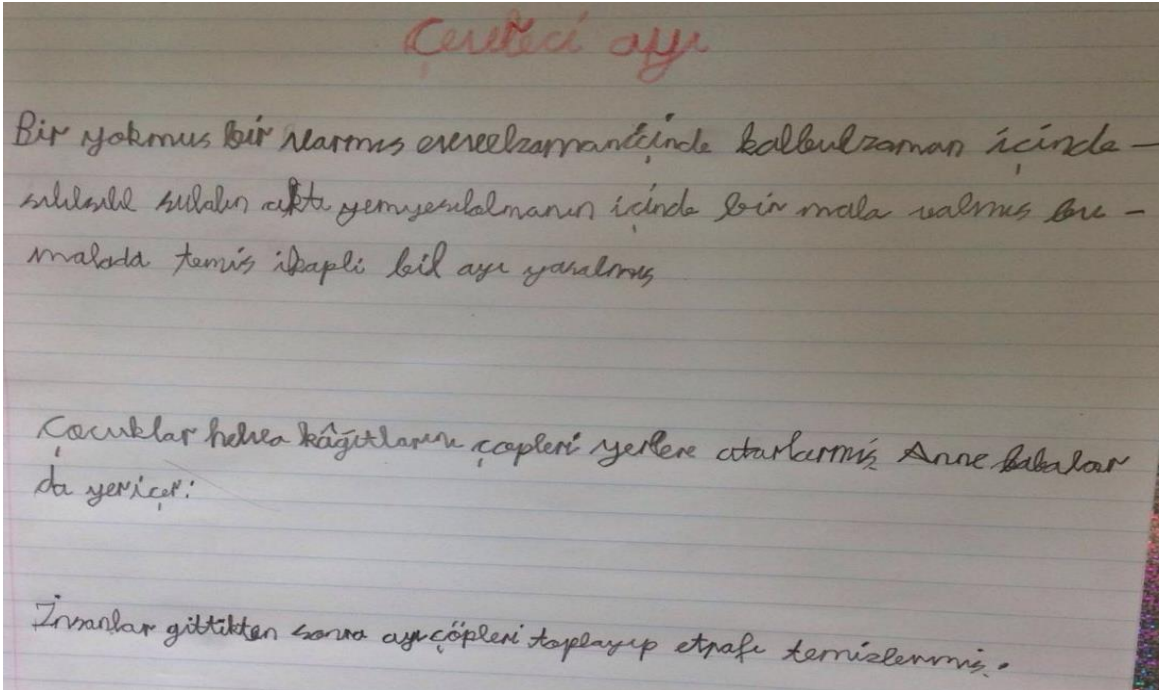 Çevreci ayı
Bir yokmus bir varmıs evveelzamaniçinde kalbulzaman içinde -
sulalın aktı yemyesılalmanın içinde bir mala valmıs bu -
malada temis ikapli bil ayı yasalmıs
Çocuklar helva kâğıtlarını çopleri yerlere atarlarmiş Anne babalar
da yeriçer.
İnsanlar gittikten sonra ayı çöpleri toplayıp etrafı temizlermiş.